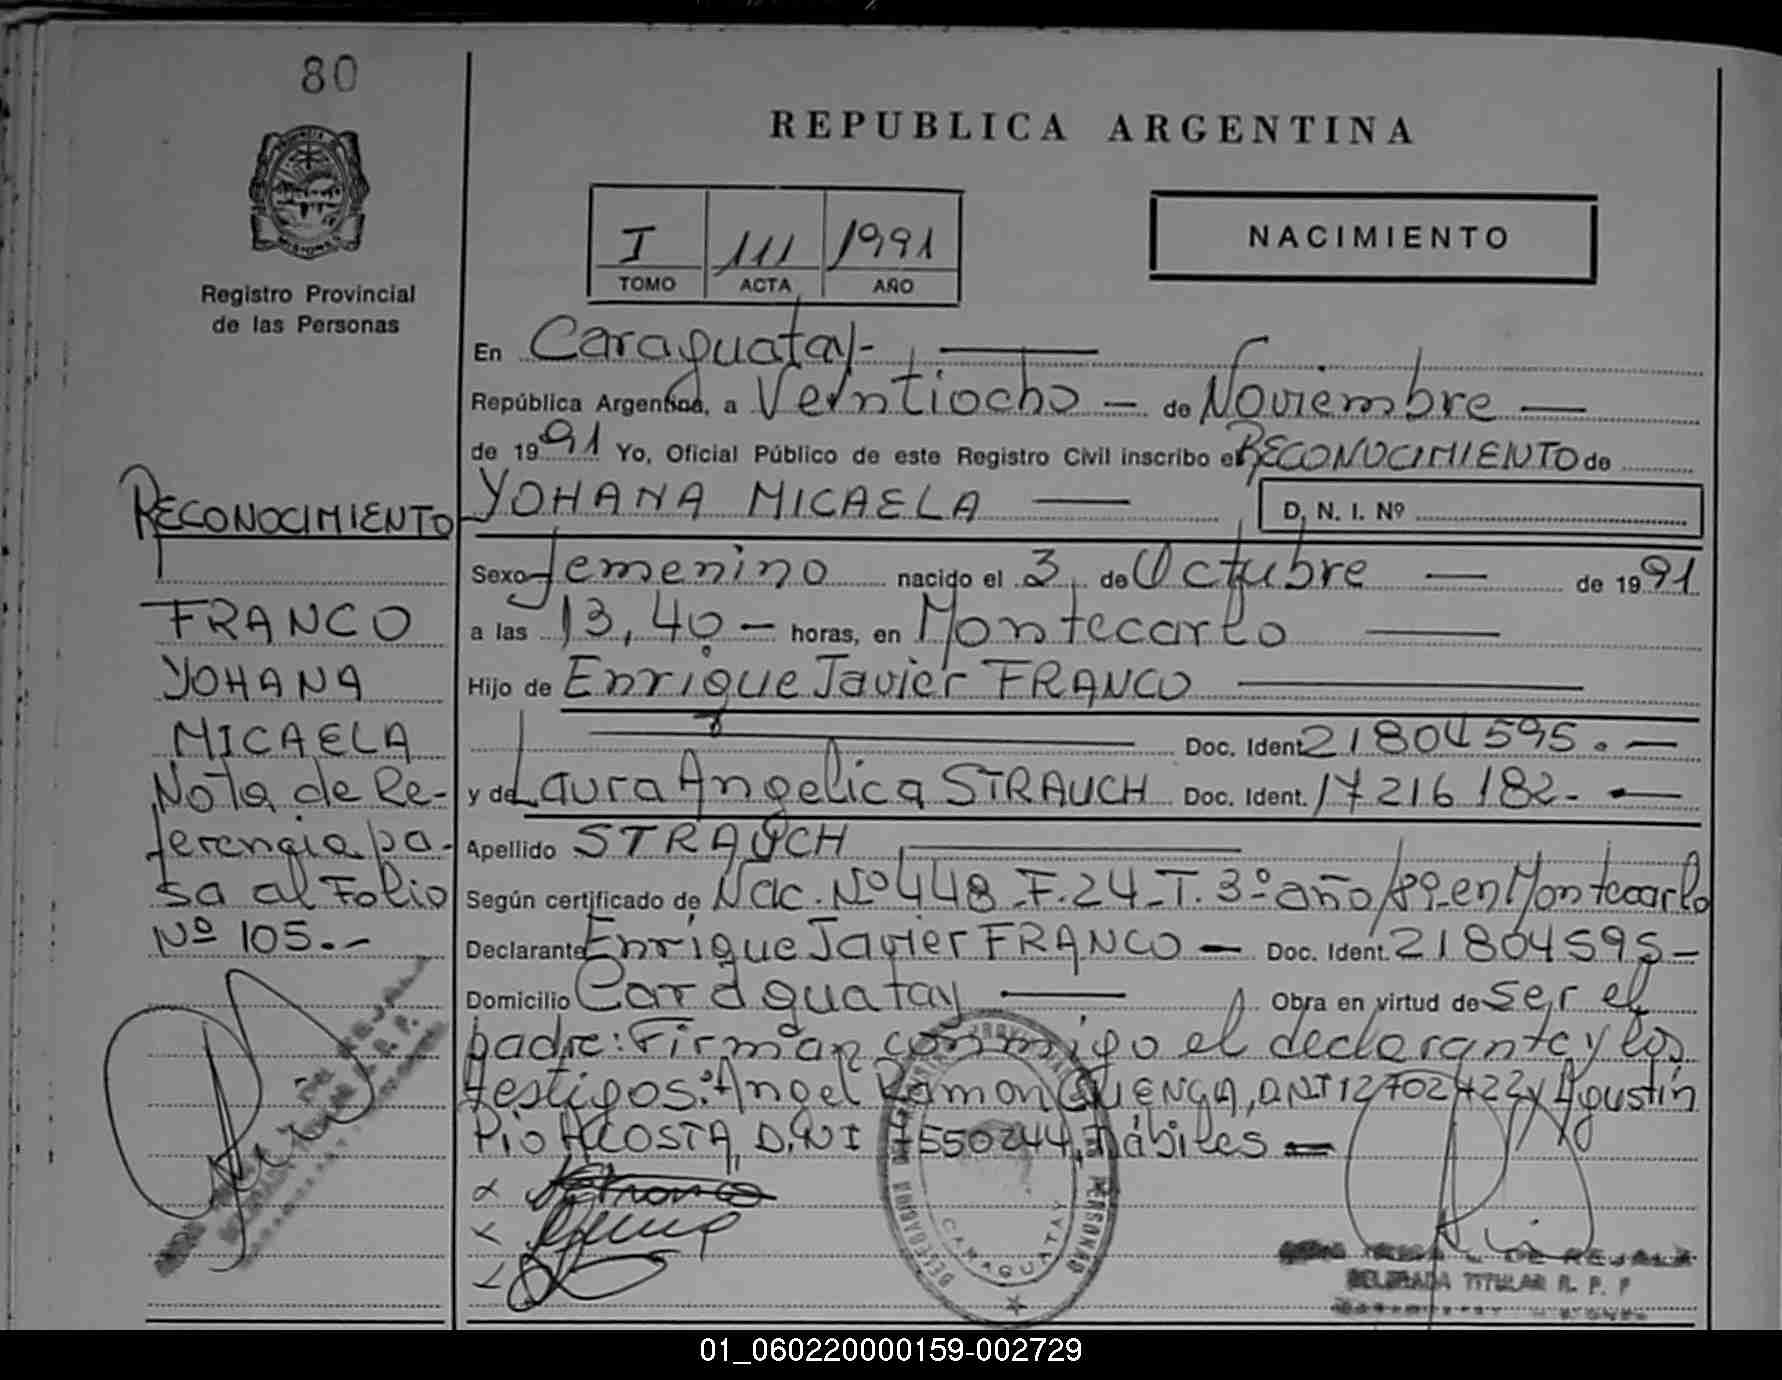 80
REPUBLICA ARGENTINA
I 111 1991
TOMO ACTA AÑO
NACIMIENTO
Registro Provincial
de las Personas
En Caraguatay-
República Argentina, a Veintiocho — de Noviembre —
de 1991 Yo, Oficial Público de este Registro Civil inscribo el RECONOCIMIENTO de
YOHANA MICAELA — D. N. I. Nº
Sexo femenino nacido el 3 de Octubre — de 1991
a las 13,40 — horas, en Montecarlo
Hijo de Enrique Javier FRANCO
Doc. Ident. 21804595. —
y de Laura Angelica STRAUCH Doc. Ident. 17216182. —
Apellido STRAUCH
Según certificado de Nac. Nº 448_F.24_T.3º año/89_en Montecarlo
Declarante Enrique Javier FRANCO — Doc. Ident. 21804595 —
Domicilio Caraguatay — Obra en virtud de ser el
padre: Firman conmigo el declarante y los
testigos: Angel Ramon CUENCA, DNI 12702422 y Agustín
Pio ACOSTA, D.NI 7550244, Hábiles —
RECONOCIMIENTO
FRANCO
YOHANA
MICAELA
Nota de Re-
ferencia pa-
sa al Folio
Nº 105.-
CARAGUATAY
DE REJALA
DELEGADA TITULAR R. P. P
01_060220000159-002729